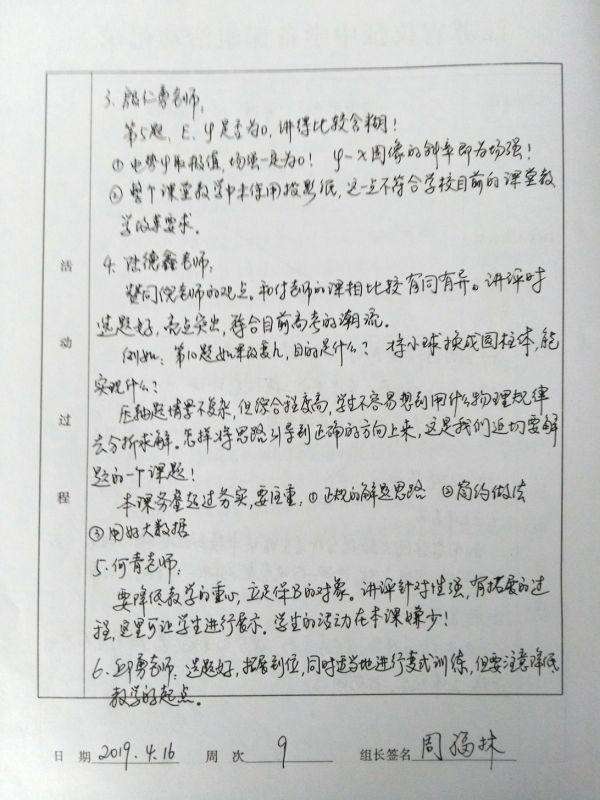 3. 殷仁勇老师:
第5题, E、φ是否为0, 讲得比较含糊!
① 电势φ取极值, 场强一定为0! φ-x图像的斜率即为场强!
② 整个课堂教学中未使用投影纸, 这一点不符合学校目前的课堂教
学改革要求。
4. 陈德鑫老师:
赞同倪老师的观点。和付老师的课相比较有同有异。讲评时
选题好, 亮点突出, 符合目前高考的潮流。
例如: 第10题如果改变h, 目的是什么? 将小球换成圆柱体, 能
实现什么?
压轴题情景不复杂, 但综合程度高, 学生不容易想到用什么物理规律
去分析求解。怎样将思路引导到正确的方向上来, 这是我们迫切要解
题的一个课题!
本课容量超过务实, 要注重: ① 正规的解题思路 ② 简约做法
③ 用好大数据
5. 何青老师:
要降低教学的重心, 立足保B的对象。讲评针对性强, 有拓展的过
程, 这里可让学生进行展示。学生的活动在本课嫌少!
6. 邱勇老师: 选题好, 拓展到位, 同时适当地进行变式训练, 但要注意降低
教学的起点。
活
动
过
程
日 期 2019.4.16 周 次 9 组长签名 周福林